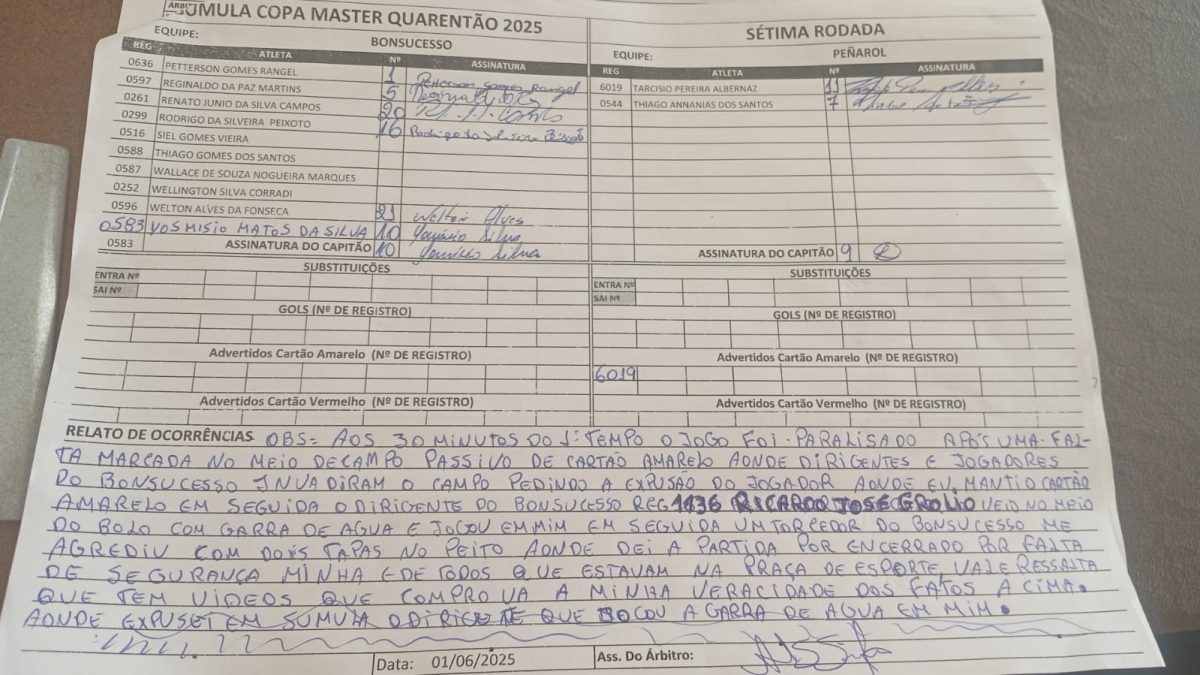 ÁRBIT
SÚMULA COPA MASTER QUARENTÃO 2025
SÉTIMA RODADA
EQUIPE: BONSUCESSO
EQUIPE: PEÑAROL
REG ATLETA Nº ASSINATURA
REG ATLETA Nº ASSINATURA
0636 PETTERSON GOMES RANGEL 1 Petterson Gomes Rangel
6019 TARCISIO PEREIRA ALBERNAZ 11
0597 REGINALDO DA PAZ MARTINS 5
0544 THIAGO ANNANIAS DOS SANTOS 7
0261 RENATO JUNIO DA SILVA CAMPOS 20
0299 RODRIGO DA SILVEIRA PEIXOTO 16 Rodrigo da Silveira Peixoto
0516 SIEL GOMES VIEIRA
0588 THIAGO GOMES DOS SANTOS
0587 WALLACE DE SOUZA NOGUEIRA MARQUES
0252 WELLINGTON SILVA CORRADI
0596 WELTON ALVES DA FONSECA 21 Welton Alves
0583 VOSMISIO MATOS DA SILVA 10 Silva
0583 ASSINATURA DO CAPITÃO 10 Silva
ASSINATURA DO CAPITÃO 9
SUBSTITUIÇÕES
SUBSTITUIÇÕES
ENTRA Nº
ENTRA Nº
SAI Nº
SAI Nº
GOLS (Nº DE REGISTRO)
GOLS (Nº DE REGISTRO)
Advertidos Cartão Amarelo (Nº DE REGISTRO)
Advertidos Cartão Amarelo (Nº DE REGISTRO)
6019
Advertidos Cartão Vermelho (Nº DE REGISTRO)
Advertidos Cartão Vermelho (Nº DE REGISTRO)
RELATO DE OCORRÊNCIAS OBS= AOS 30 MINUTOS DO 1º TEMPO O JOGO FOI PARALISADO APÓS UMA FAL-
TA MARCADA NO MEIO DE CAMPO PASSIVO DE CARTÃO AMARELO AONDE DIRIGENTES E JOGADORES
DO BONSUCESSO INVADIRAM O CAMPO PEDINDO A EXPUSÃO DO JOGADOR AONDE EU MANTIO CARTÃO
AMARELO EM SEGUIDA O DIRIGENTE DO BONSUCESSO REG 1436 RICARDO JOSÉ GROLIO VEIO NO MEIO
DO BOLO COM GARRA DE AGUA E JOGOU EM MIM EM SEGUIDA UM TORCEDOR DO BONSUCESSO ME
AGREDIU COM DOIS TAPAS NO PEITO AONDE DEI A PARTIDA POR ENCERRADO POR FALTA
DE SEGURANÇA MINHA E DE TODOS QUE ESTAVAM NA PRAÇA DE ESPORTE, VALE RESSALTA
QUE TEM VÍDEOS QUE COMPROVA A MINHA VERACIDADE DOS FATOS A CIMA.
AONDE EXPUSEI EM SUMULA O DIRIGENTE QUE JOGOU A GARRA DE AGUA EM MIM.
Data: 01/06/2025 Ass. Do Árbitro: